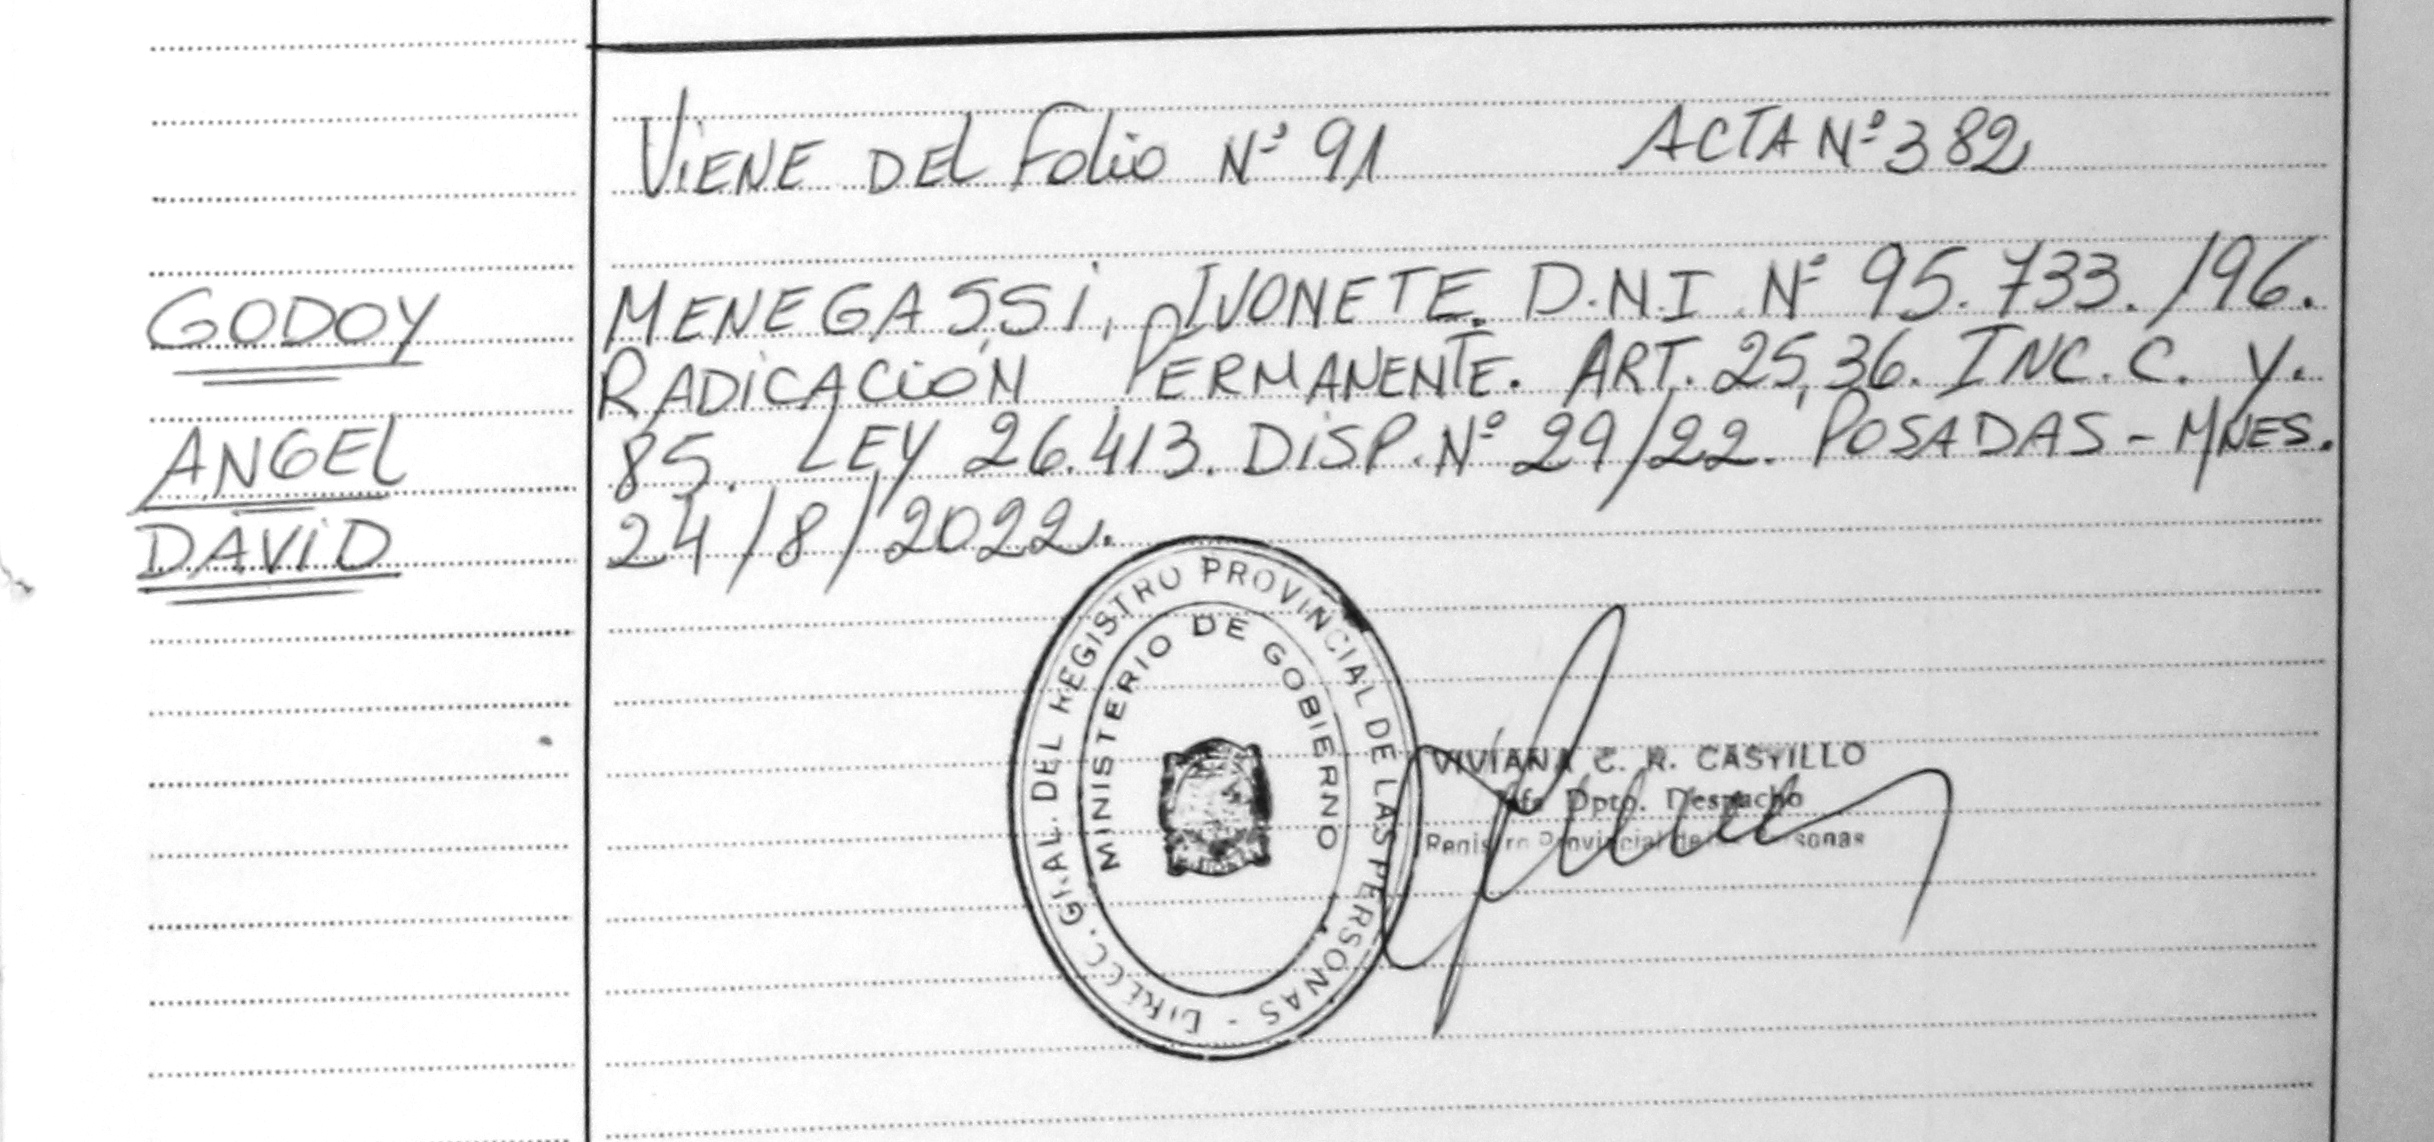 VIENE DEL Folio Nº 91 ACTA Nº 382
GODOY
ANGEL
DAVID
MENEGASSI, IVONETE. D.N.I Nº 95.733.196.
RADICACIÓN PERMANENTE. ART. 25,36. INC. C. Y.
85. LEY 26.413. DISP. Nº 29/22. POSADAS - MNES.
24/8/2022.
DIRECC. GRAL. DEL REGISTRO PROVINCIAL DE LAS PERSONAS -
MINISTERIO DE GOBIERNO
VIVIANA C. R. CASTILLO
Jefe Dpto. Despacho
Registro Provincial de las Personas